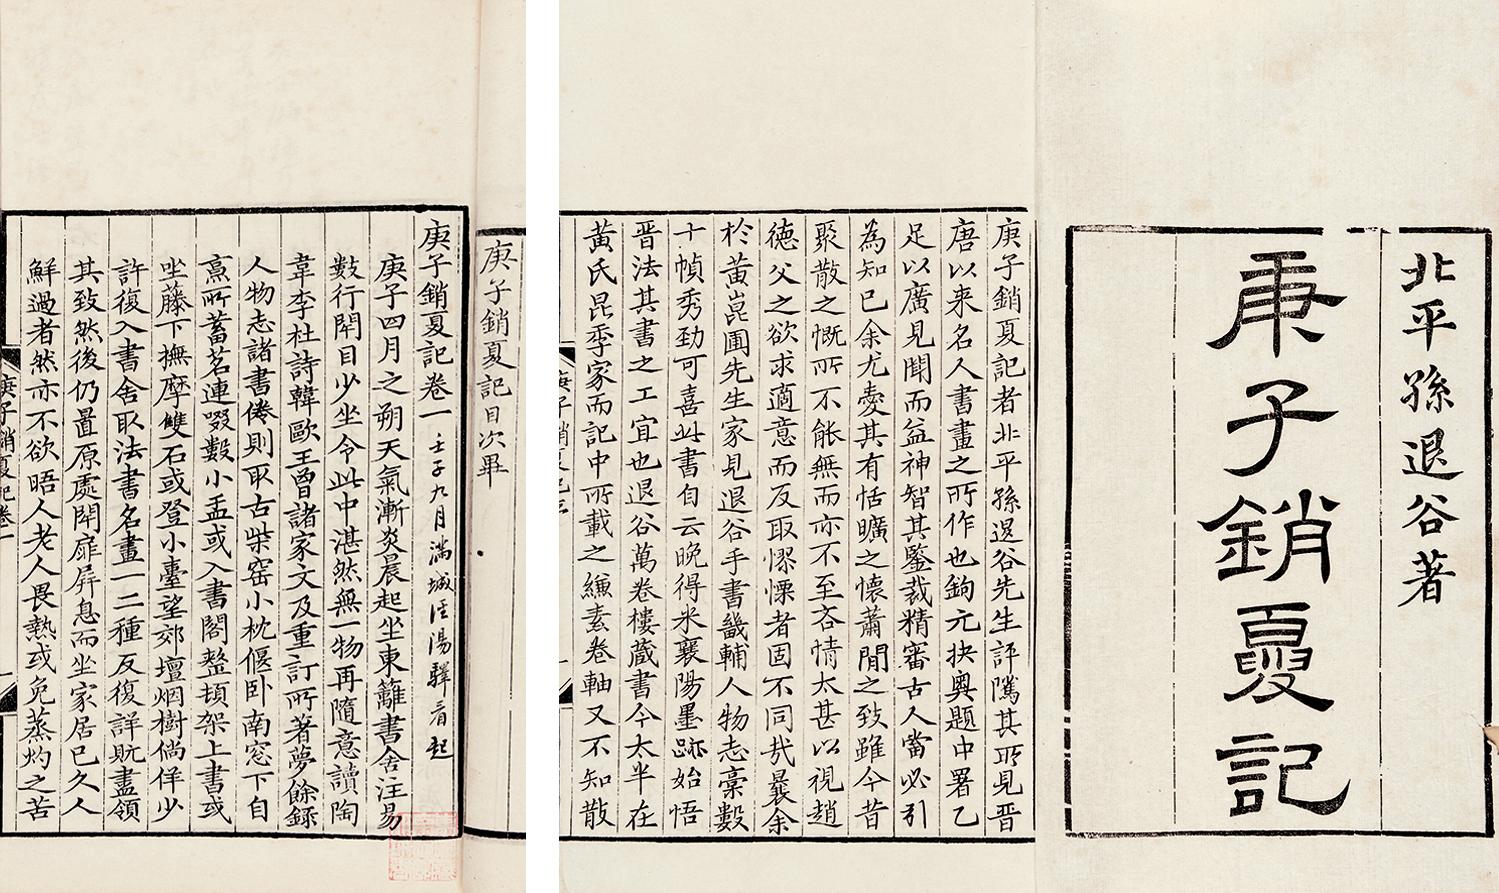 北平孫退谷著
庚子銷夏記
庚子銷夏記者北平孫退谷先生評騭其所見晉
唐以来名人書畫之所作也鉤元抉奥題中署乙
足以廣見聞而益神智其鑒裁精審古人當必引
為知已余尤愛其有恬曠之懷蕭閒之致雖今昔
聚散之慨所不能無而亦不至吝情太甚以視趙
德父之欲求適意而反取憀慄者固不同哉曩余
於黃崑圃先生家見退谷手書畿輔人物志槀數
十幀秀勁可喜此書自云晚得米襄陽墨跡始悟
晋法其書之工宜也退谷萬卷樓藏書今太半在
黃氏昆季家而記中所載之縑素卷軸又不知散
庚子銷夏記
庚子銷夏記目次畢
庚子銷夏記卷一 壬子九月滿城涇陽驛看起
庚子四月之朔天氣漸炎晨起坐東籬書舍注易
數行閉目少坐令此中湛然無一物再隨意讀陶
韋李杜詩韓歐王曾諸家文及重訂所著夢餘録
人物志諸書倦則取古柴窑小枕偃卧南窓下自
烹所蓄茗連啜數小盂或入書閣整頓架上書或
坐藤下撫摩雙石或登小臺望郊壇烟樹倘佯少
許復入書舍取法書名畫一二種反復詳玩盡領
其致然後仍置原處閉扉屏息而坐家居已久人
鮮過者然亦不欲晤人老人畏熱或免蒸灼之苦
庚子銷夏記卷一
一